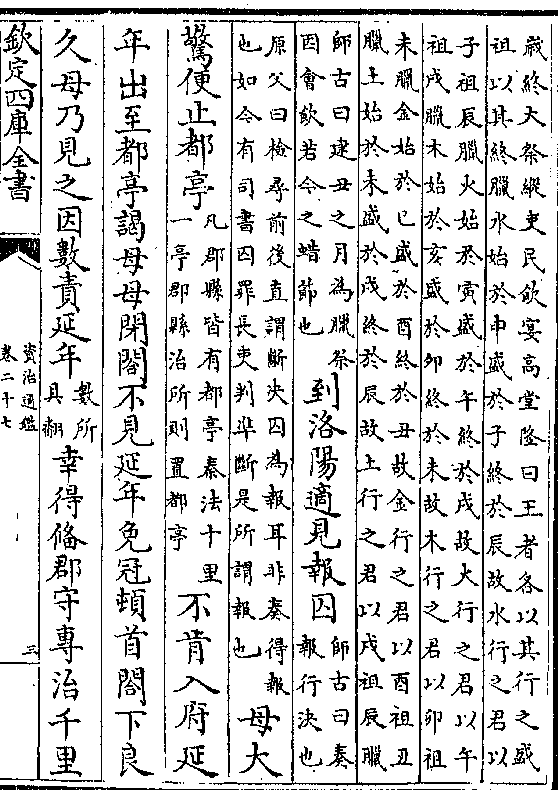 歲終大祭縱吏民飲宴高堂隆曰王者各以其行之盛
祖以其終臘水始於申盛於子終於辰故水行之君以
子祖辰臘火始於寅盛於午終於戌故火行之君以午
祖戌臘木始於亥盛於卯終於未故木行之君以卯祖
未臘金始於巳盛於酉終於丑故金行之君以酉祖丑
臘土始於未盛於戌終於辰故土行之君以戌祖辰臘
師古曰建丑之月為臘祭
因會飲若今之蜡節也
到洛陽適見報囚
師古曰奏
報行決也
原父曰檢尋前後直謂斷決囚為報耳非奏得報
也如今有司書囚罪長吏判準斷是所謂報也
母大
驚便止都亭
凡郡縣皆有都亭秦法十里
一亭郡縣治所則置都亭
不肯入府延
年出至都亭謁母母閉閤不見延年免冠頓首閤下良
久母乃見之因數責延年
數所
具翻
幸得備郡守專治千里
欽定四庫全書
資治通鑑
卷二十七
三